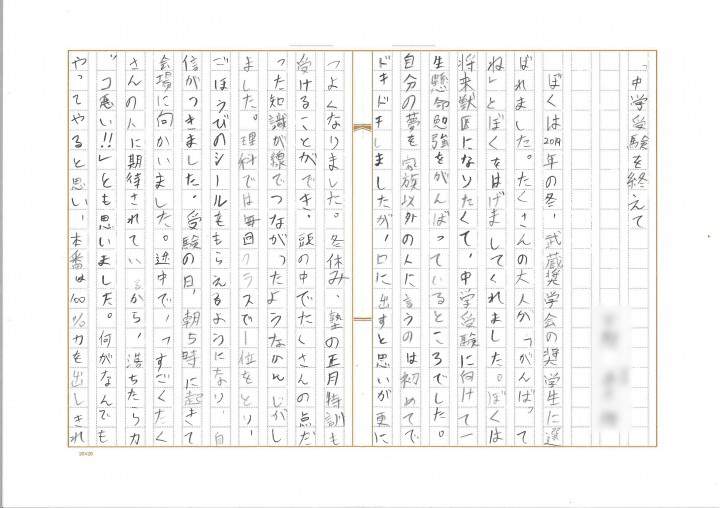 「中学受験を終えて
ぼくは2019年の冬、武蔵奨学会の奨学生に選
ばれました。たくさんの大人が「がんばって
ね」とぼくをはげましてくれました。ぼくは
将来獣医になりたくて、中学受験に向けて一
生懸命勉強をがんばっているところでした。
自分の夢を家族以外の人に言うのは初めてで
ドキドキしましたが、口に出すと思いが更に
つよくなりました。冬休み、塾の正月特訓も
受けることができ、頭の中でたくさんの点だ
った知識が線でつながったようなかんじがし
ました。理科では毎回クラスで一位をとり、
ごほうびのシールをもらえるようになり、自
信がつきました。受験の日、朝5時に起きて
会場に向かいました。途中で、「すごくたく
さんの人に期待されているから、落ちたらカ
ッコ悪い!!」とも思いました。何がなんでも
やってやると思い、本番は100%力を出しきれ
20×20